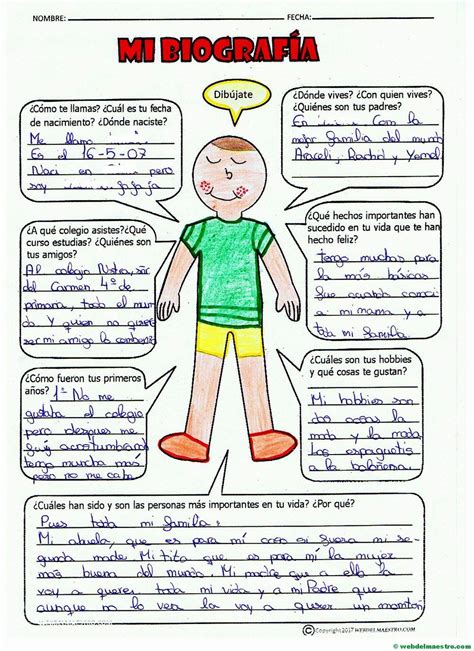 NOMBRE:
FECHA:
MI BIOGRAFÍA
Dibújate
¿Cómo te llamas? ¿Cuál es tu fecha
de nacimiento? ¿Dónde naciste?
Me llamo
En el 16-5-07
Nací en pero
soy jajaja
¿Dónde vives? ¿Con quien vives?
¿Quiénes son tus padres?
En Con la
mejor familia del mundo
Araceli, Rachid y Yemal
¿A qué colegio asistes?¿Qué
curso estudias? ¿Quiénes son
tus amigos?
Al colegio Ntra, sra
del Carmen 4º de
primaria, todo el mun
do y quien no quiere
ser mi amigo lo
¿Qué hechos importantes han
sucedido en tu vida que te han
hecho feliz?
tengo muchas para
la más
fue cuando conoci
a mi mama y a
toda mi familia.
¿Cómo fueron tus primeros
años?
1º No me
gustaba el colegio
pero despues me
fui acostumbrando
tengo mucha mas
pero no me cabe
¿Cuáles son tus hobbies
y qué cosas te gustan?
Mi hobbies son
dos cosas la
moto y la moto
Los espaguetis
a la boloñesa.
¿Cuáles han sido y son las personas más importantes en tu vida? ¿Por qué?
Pues toda mi familia:
Mi abuela, que es para mí como si fuera mi se-
gunda madre. Mi tita que es para mí la mujer
mas buena del mundo. Mi madre que a ella la
voy a querer toda mi vida y a mi Padre que
aunque no lo vea la voy a querer un montón
©Copyright 2017 WEBDELMAESTRO.COM
© webdelmaestro.com